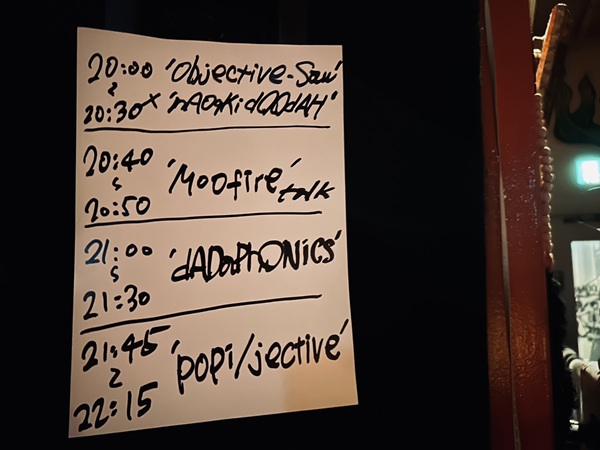 20:00 'Objective-Saw'
~
20:30 × 'nAOnKidOOdAH'
20:40
~ 'Moofire' talk
20:50
21:00
~ 'dADaPhONiCS'
21:30
21:45
~ 'popi/jective'
22:15